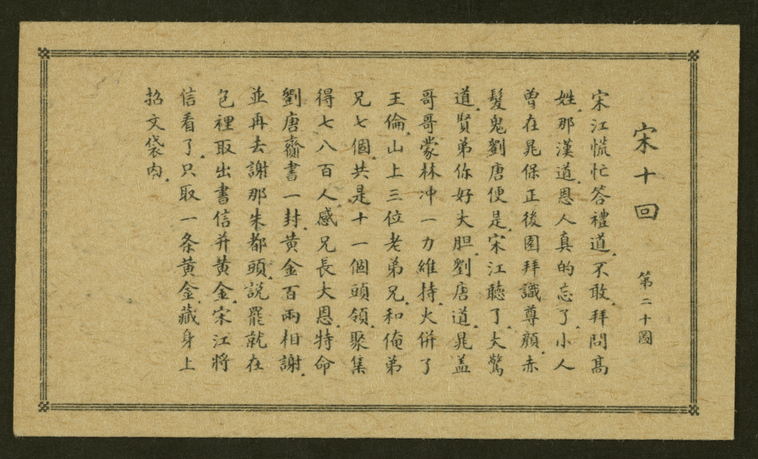 宋十回
第二十圖
宋江慌忙答禮道．不敢拜問高
姓．那漢道．恩人真的忘了．小人
曾在晁保正後園拜識尊顏．赤
髮鬼劉唐便是．宋江聽了．大驚
道．賢弟你好大胆．劉唐道．晁蓋
哥哥蒙林冲一力維持．火併了
王倫．山上三位老弟兄．和俺弟
兄七個．共是十一個頭領．聚集
得七八百人．感兄長大恩．特命
劉唐齎書一封．黃金百兩相謝．
並再去謝那朱都頭．說罷．就在
包裡取出書信并黃金．宋江將
信看了．只取一条黃金．藏身上
招文袋內．